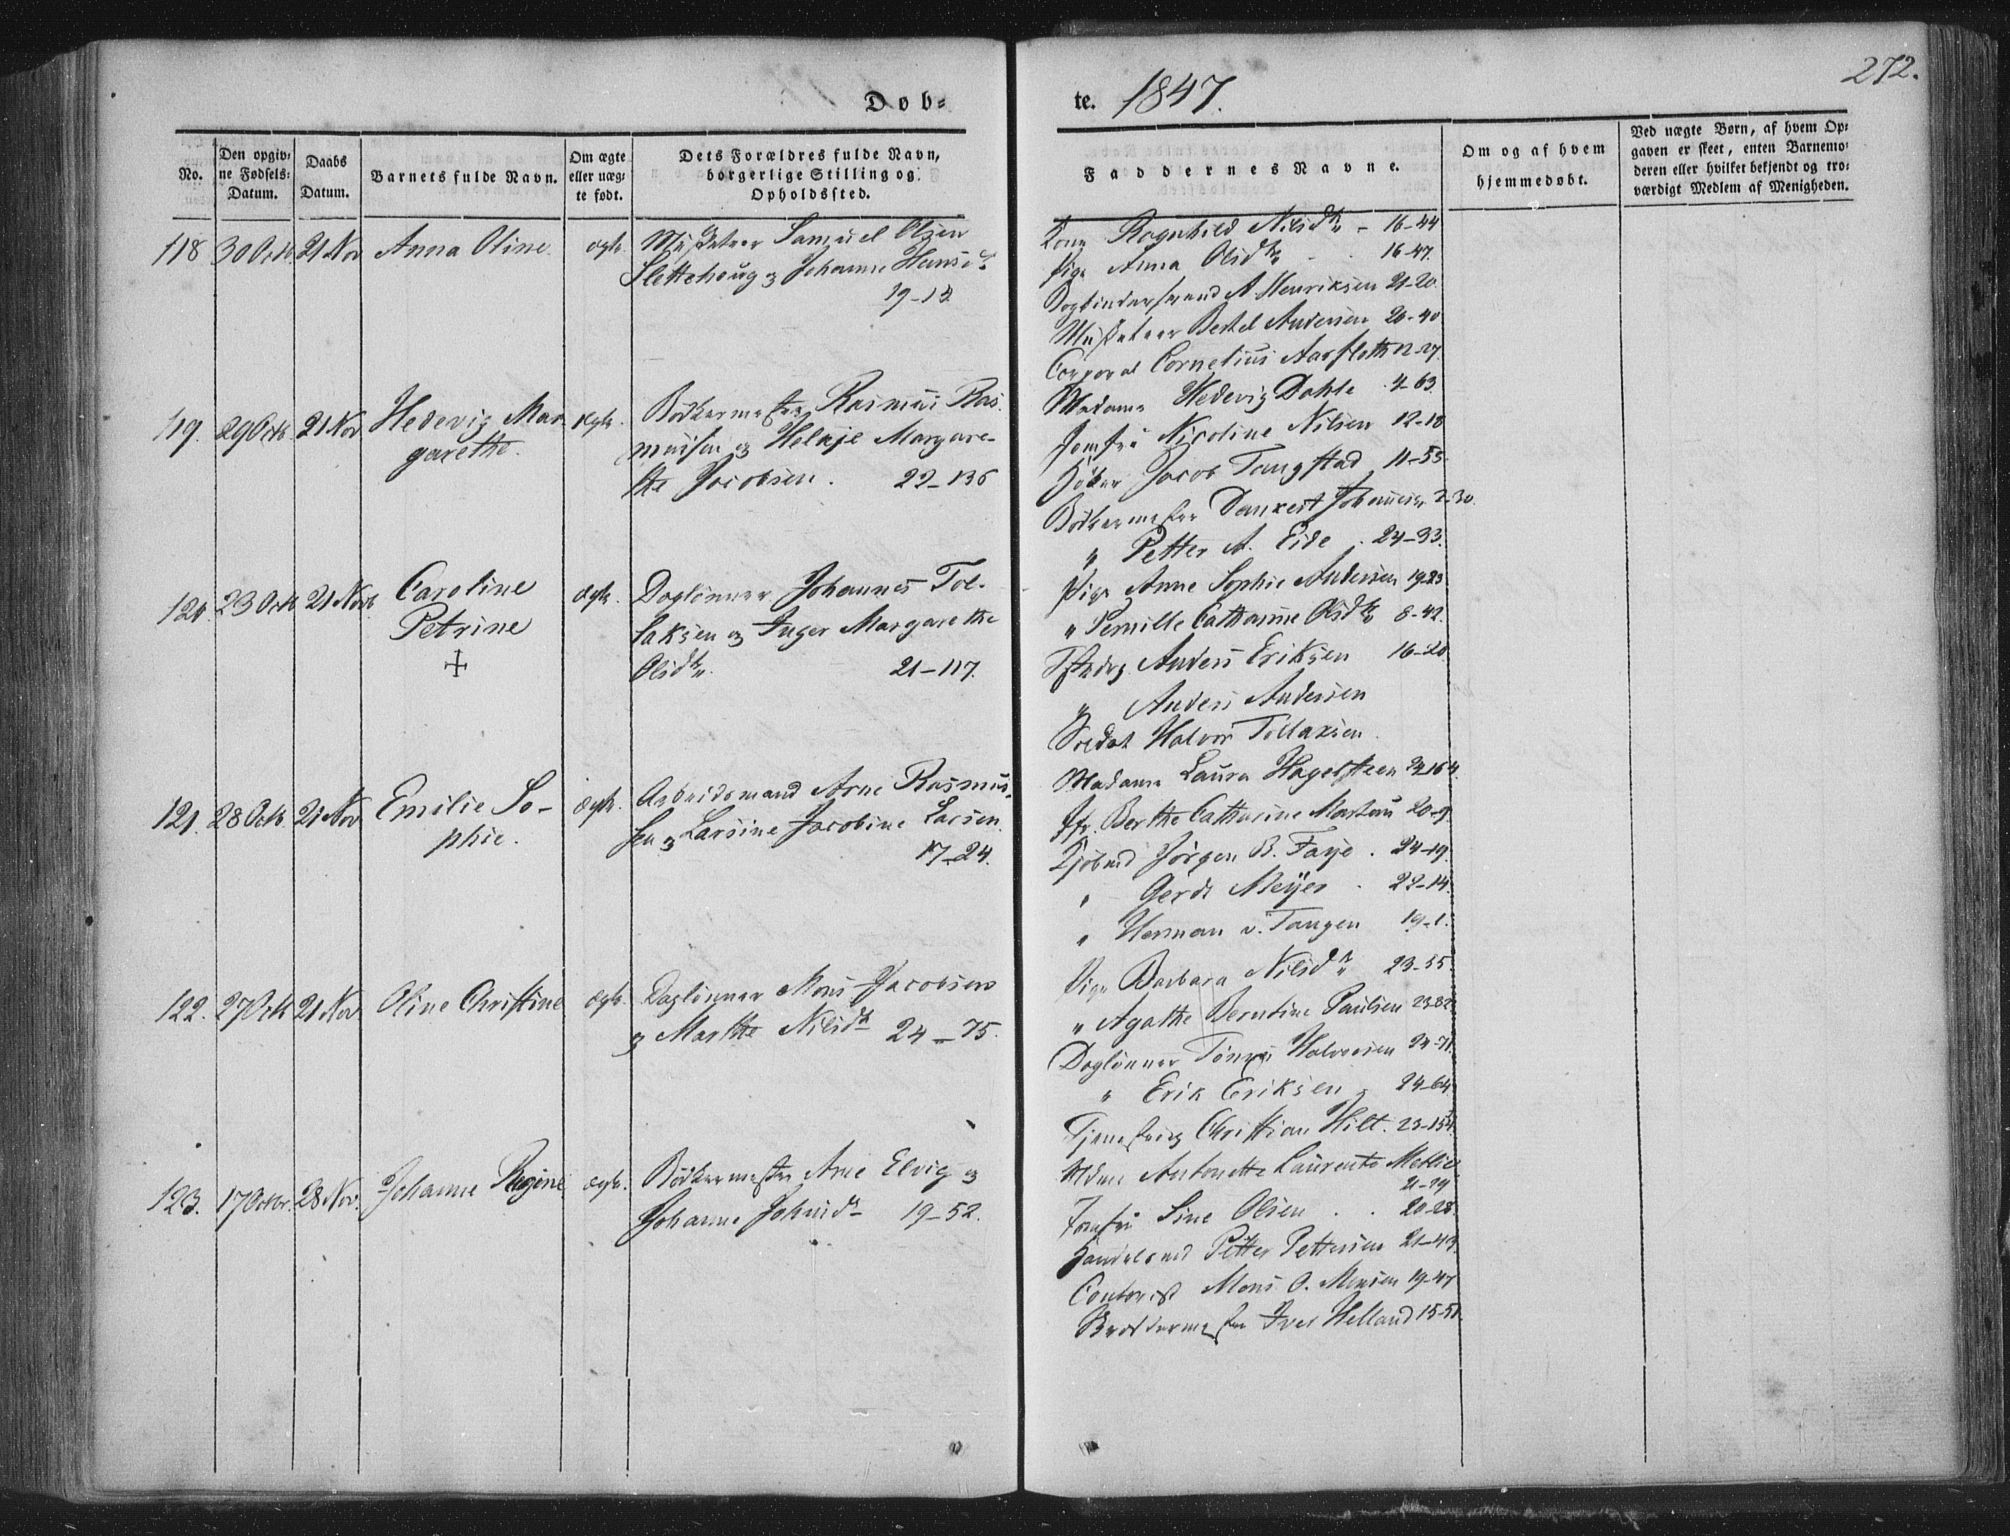 272.
Døb-
te. 1847.
No.
Den opgiv-
ne Fødsels-
Datum.
Daabs
Datum.
Barnets fulde Navn.
Om ægte
eller uæg-
te født.
Dets Forældres fulde Navn,
borgerlige Stilling og
Opholdssted.
Faddernes Navne.
Om og af hvem
hjemmedøbt.
Ved uægte Børn, af hvem Op-
gaven er skeet, enten Barnemo-
deren eller hvilket bekjendt og tro-
værdigt Medlem af Menigheden.
118 30 Octb. 21 Nov Anna Oline. ægte.
Musketeer Samuel Olsen
Slettehoug og Johanne Hansd.
19-12
Kone Ragnhild Nilsdtr - 16-44
Pige Anna Olsdtr - 16-47.
Bogbindersvend A Henriksen 21-20.
Musketeer Bertel Andersen 20-40
Corporal Cornelius Aarfloth 12-27.
119. 29 Octb. 21 Nov Hedevig Mar-
garethe. ægte.
Bødkermester Rasmus Ras-
mussen og Helsje Margare-
the Jacobsen. 22-136
Madame Hedevig Dahle 4-63.
Jomfru Nicoline Nilsen 12-18
Høker Jacob Tangstad 11-55.
Bødkermester Dankert Johannesen 2-30.
" Petter A. Eide. 24-33.
120. 23 Octb 21 Novb Caroline
Petrine
+
ægte.
Daglønner Johannes Tol-
laksen og Inger Margarethe
Olsdtr. 21-117.
Pige Anne Sophie Andersen 19-23
" Pernille Cathrine Olsdtr 8-42.
Anders Eriksen 16-20
" Anders Andersen
Soldat Halvor Tollaksen.
121. 28 Octb. 21 Nov Emilie So-
phie. ægte.
Arbeidsmand Arne Rasmus-
sen og Larsine Jacobine Larsen.
17-24.
Madame Laura Hagelsteen 24-164.
Jfr. Berthe Cathrine Martens 20-9.
Kjøbmd Jørgen B. Faye. 24-19.
" Gerdt Meyer. 22-14.
" Herman v. Tangen 19-1.
122. 27 Octb 21 Nov Oline Christine ægte.
Daglønner Mons Jacobsen
og Marthe Nilsdtr 24-75.
Pige Barbara Nilsdtr 23-55.
" Agathe Berntine Paulsen 23-82.
Daglønner Tønnes Halvorsen 24-71.
" Erik Eriksen, 24-64.
Christian Hilt. 23-154.
123. 17 Octbr. 28 Nov. Johanne Regine ægte.
Bødkermester Arne Elvig og
Johanne Johnsdtr 19-52.
Mdme Antonette Laurentze
21-29
Jomfru Sine Olsen . . 20-28.
Handelsmd Petter Pettersen 21-43.
Contorist Mons O. Monsen 19-47
Bødkermester Iver Helland 15-51.